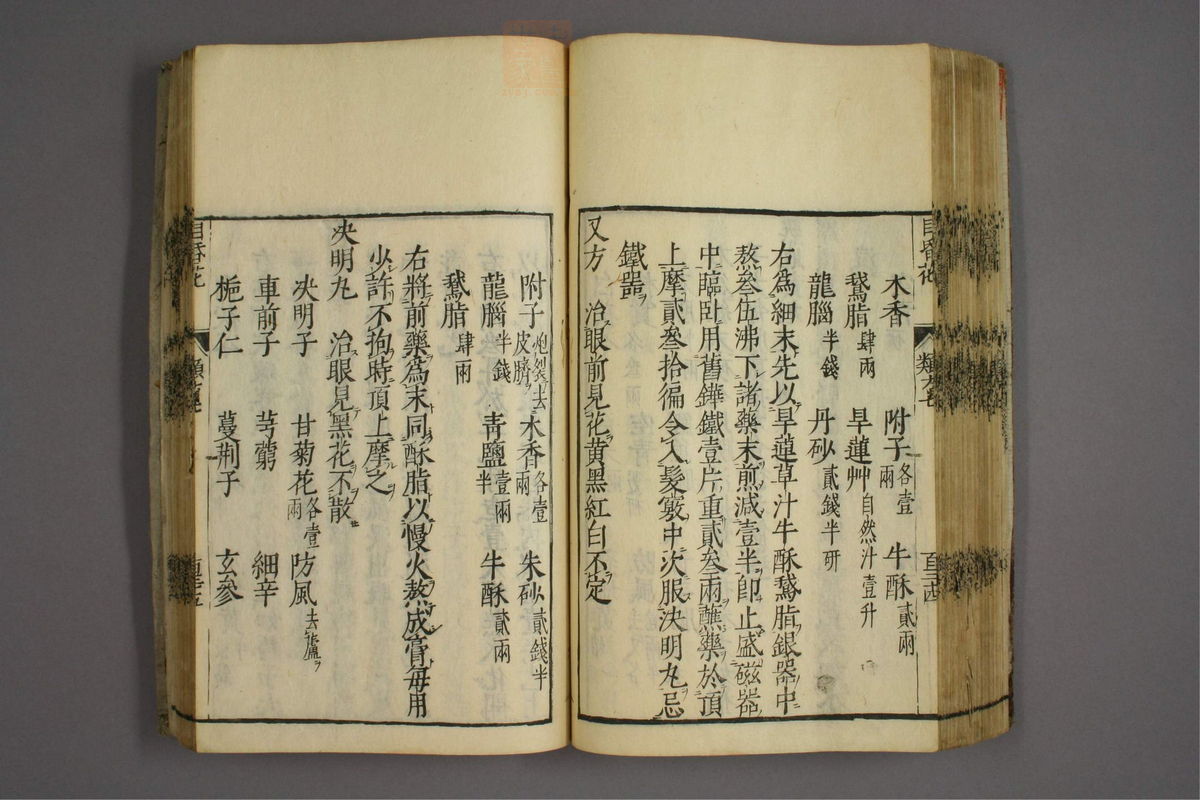 木香 附子各壹兩 牛酥貳兩
鵝脂肆兩 旱蓮艸自然汁壹升
龍腦半錢 丹砂貳錢半研
右爲細末先以旱蓮草汁牛酥鵝脂銀器中
熬叄伍沸下諸藥末煎減壹半卽止盛磁器
中臨臥用舊鏵鐵壹片重貳叄兩蘸藥於頂
上摩貳叄拾徧令入髮竅中次服決明丸忌
鐵器
又方 治眼前見花黃黑紅白不定
附子炮裂去皮臍 木香各壹兩 朱砂貳錢半
龍腦半錢 青鹽壹兩半 牛酥貳兩
鵝脂肆兩
右將前藥爲末同酥脂以慢火熬成膏每用
少許不拘時頂上摩之
决明丸 治眼見黑花不散
决明子 甘菊花各壹兩 防風去蘆
車前子 芎藭 細辛
梔子仁 蔓荆子 玄參
目昏花